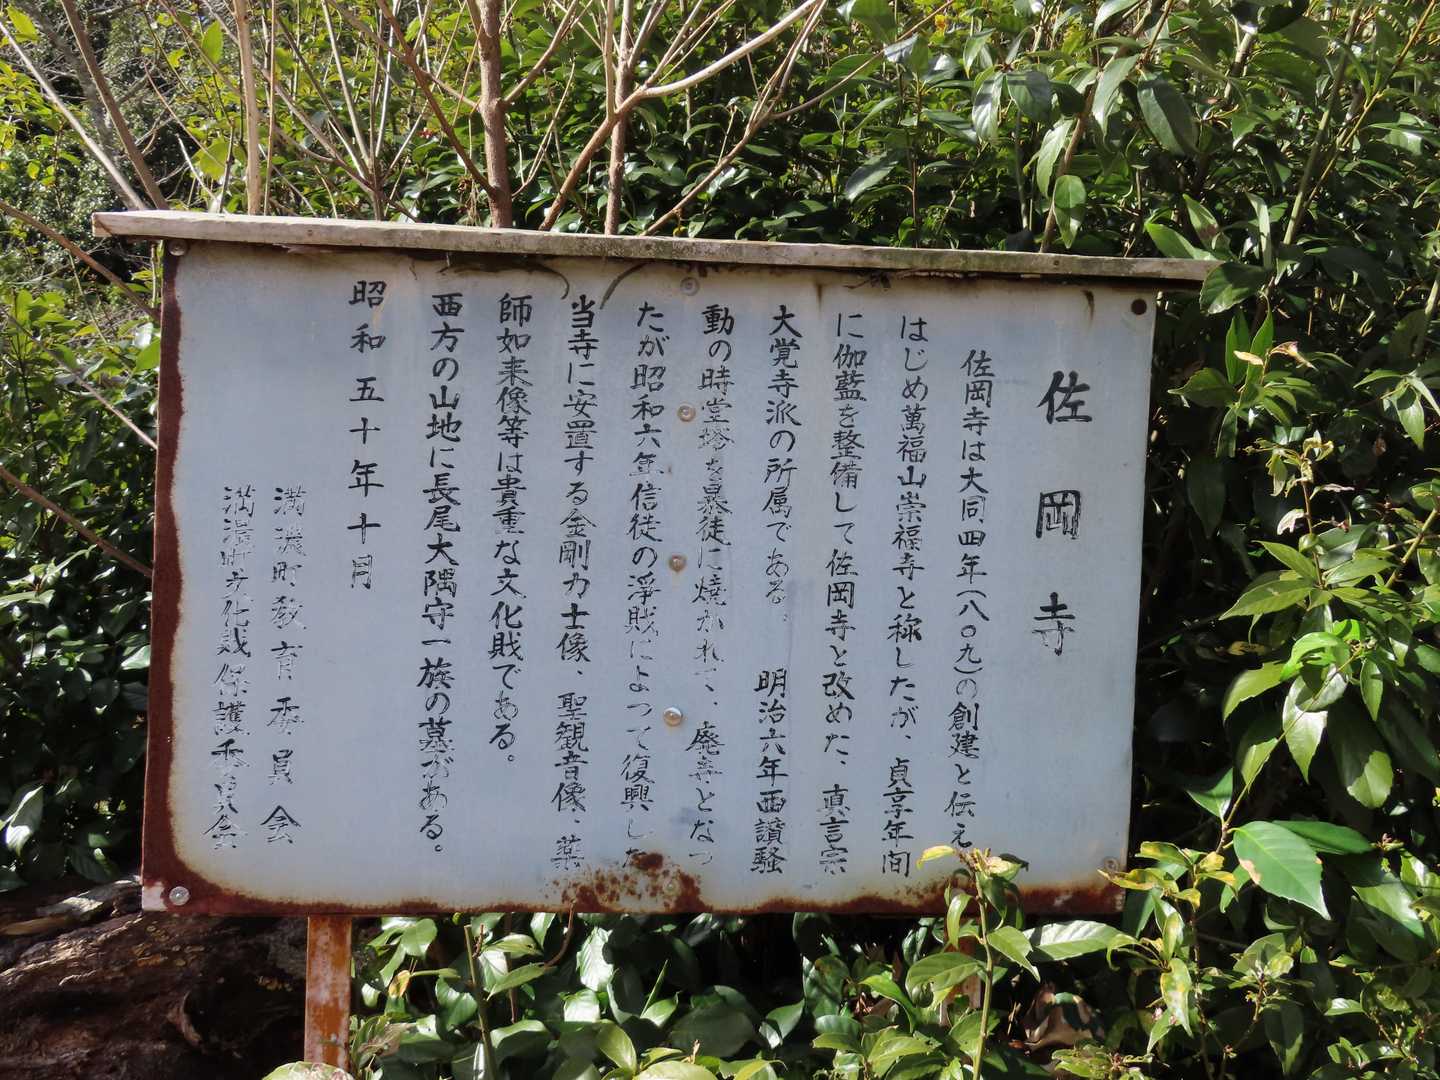 佐岡寺
佐岡寺は大同四年(八〇九)の創建と伝え
はじめ萬福山崇福寺と称したが、貞享年間
に伽藍を整備して佐岡寺と改めた、真言宗
大覚寺派の所属である。 明治六年西讃騒
動の時堂塔を暴徒に焼かれて、廃寺となっ
たが昭和六年信徒の浄財によって復興した
当寺に安置する金剛力士像、聖観音像、薬
師如来像等は貴重な文化財である。
西方の山地に長尾大隅守一族の墓がある。
昭和五十年十月
満濃町教育委員会
満濃町文化財保護委員会